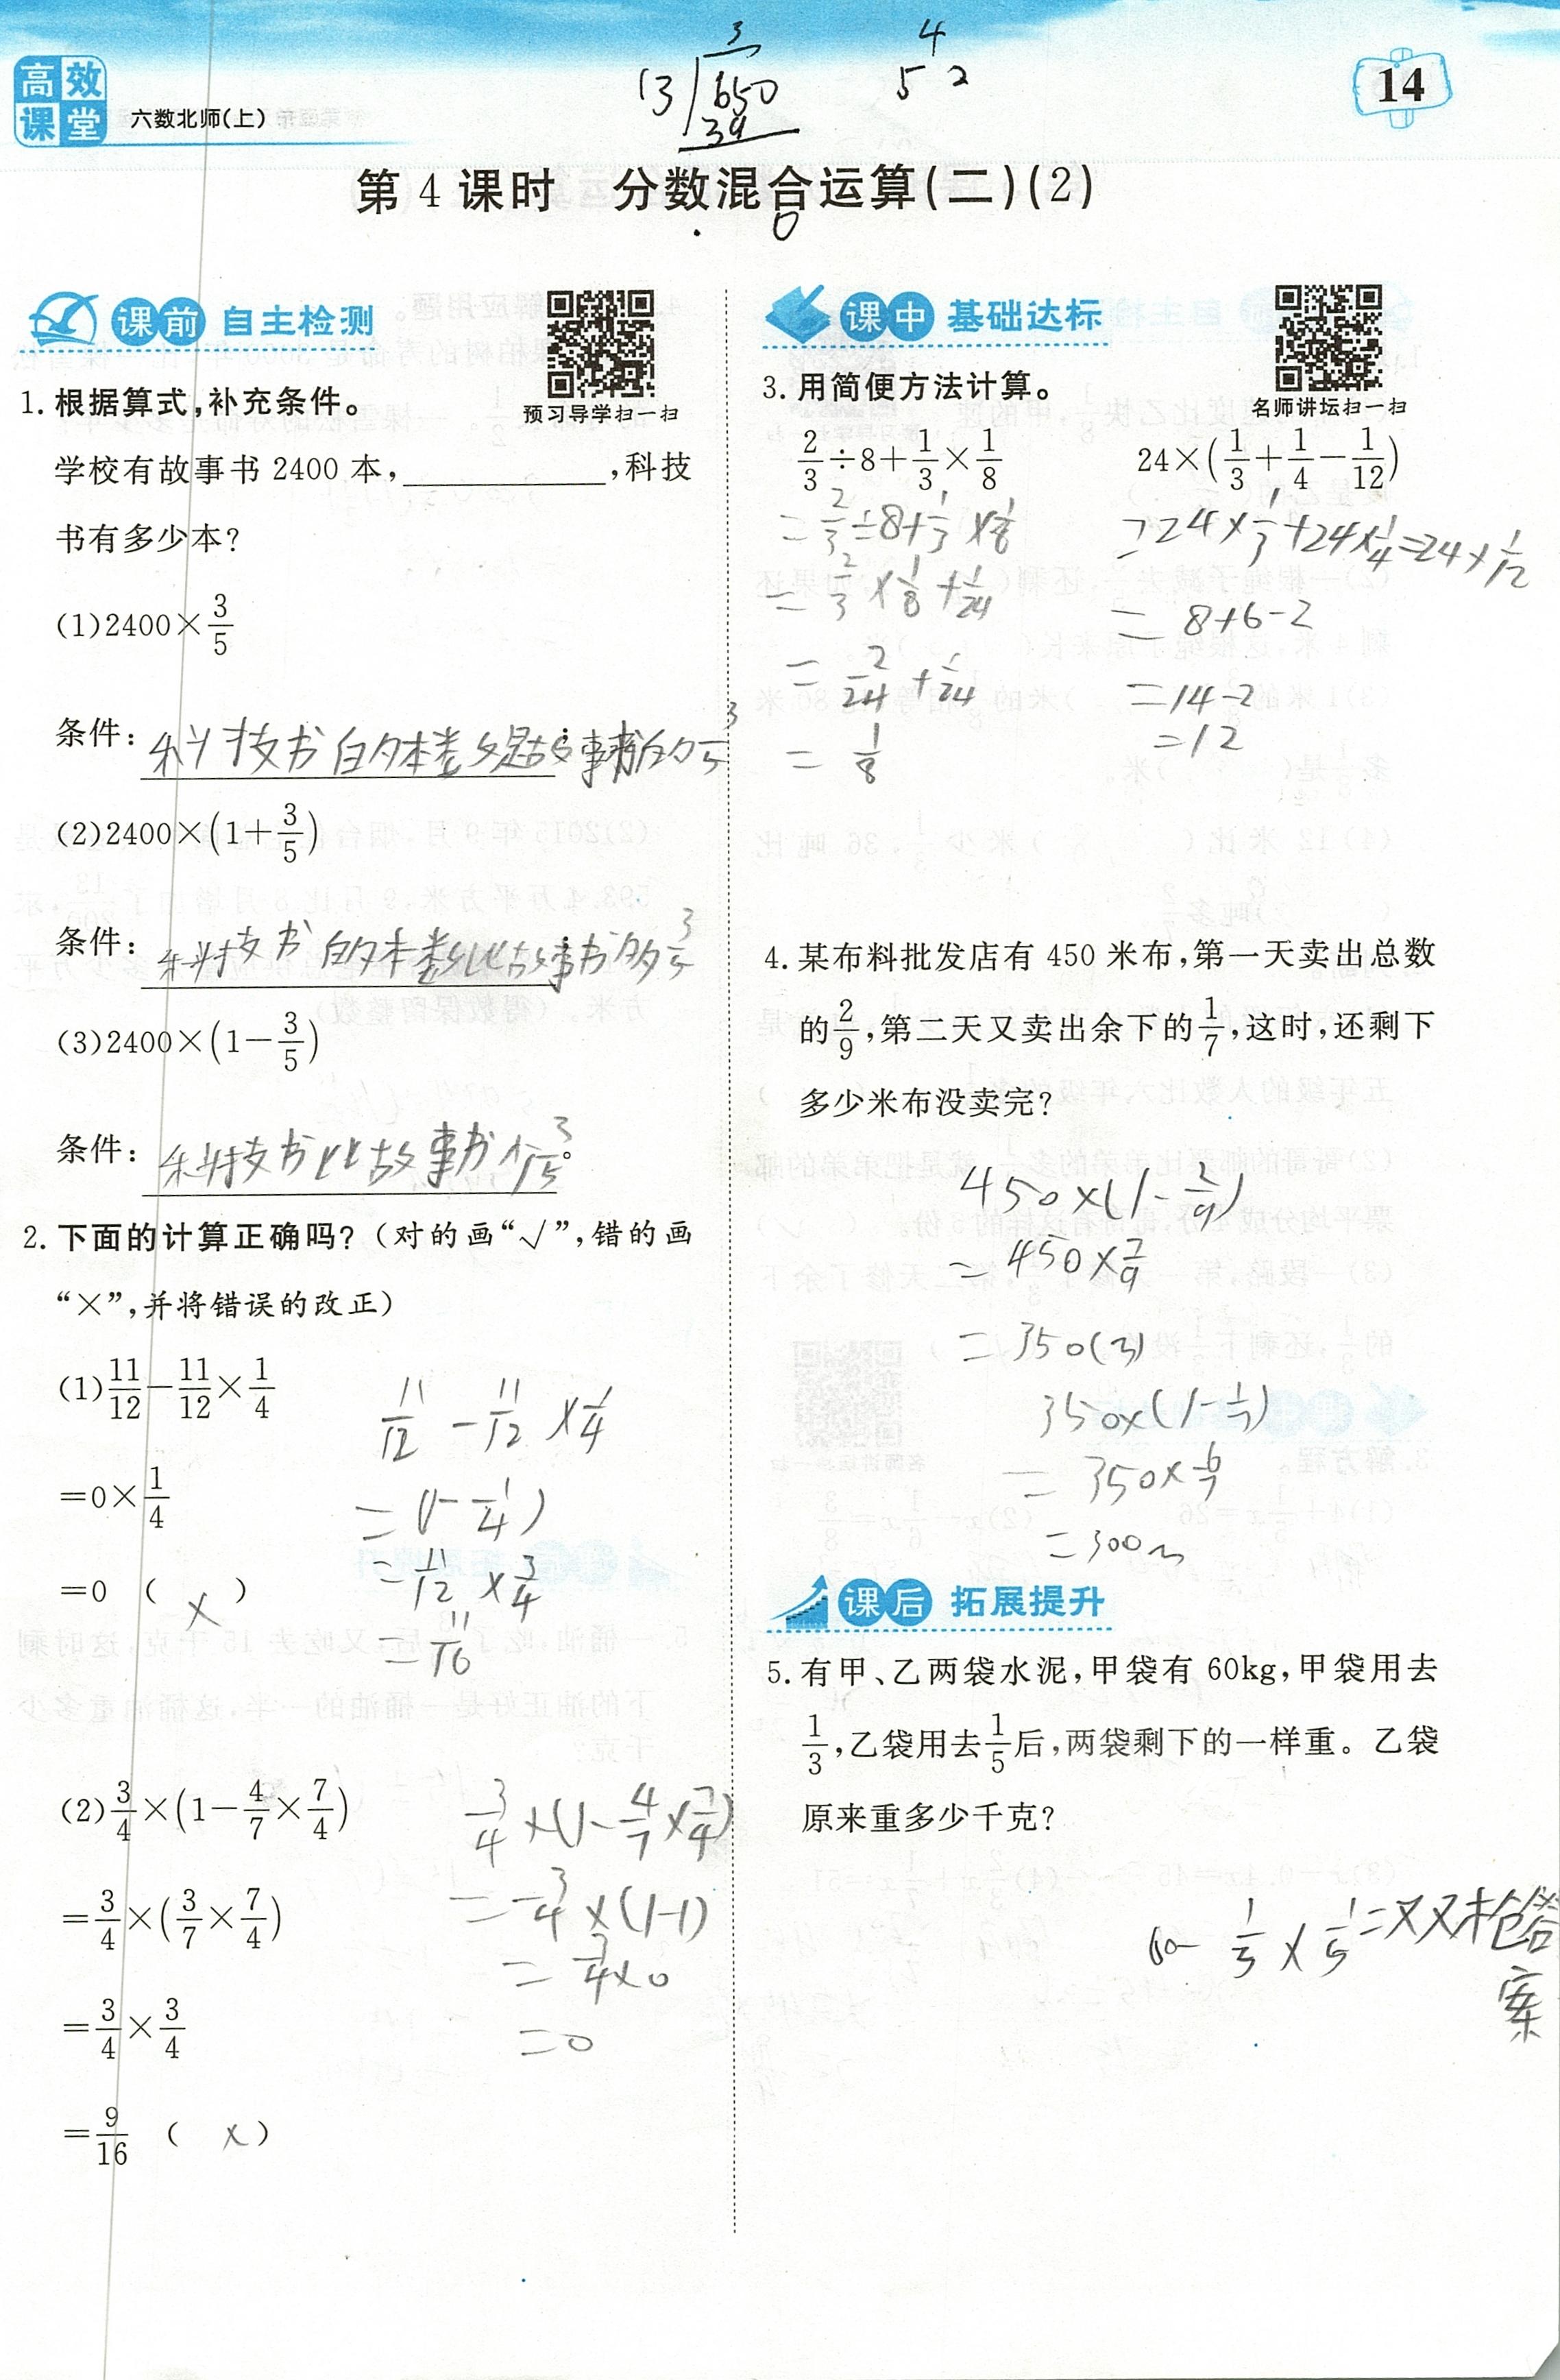 高效课堂
六数北师(上)
14
3
13 650
39
4
5 2
第4课时 分数混合运算(二)(2)
课前 自主检测
预习导学扫一扫
1.根据算式,补充条件。
学校有故事书2400本,____________,科技
书有多少本?
(1)2400×3/5
条件:科技书的本数是故事书的3/5
(2)2400×(1+3/5)
条件:科技书的本数比故事书多3/5
(3)2400×(1-3/5)
条件:科技书比故事书少3/5。
2.下面的计算正确吗?(对的画“√”,错的画
“×”,并将错误的改正)
(1)11/12-11/12×1/4
=0×1/4
=0 ( × )
11/12-11/12×1/4
=(1-1/4)
=11/12×3/4
=11/16
(2)3/4×(1-4/7×7/4)
=3/4×(3/7×7/4)
=3/4×3/4
=9/16 ( × )
3/4×(1-4/7×7/4)
=3/4×(1-1)
=3/4×0
=0
课中 基础达标
名师讲坛扫一扫
3.用简便方法计算。
2/3÷8+1/3×1/8
=2/3÷8+1/3×1/8
=2/3×1/8+1/24
=2/24+1/24
=1/8
24×(1/3+1/4-1/12)
=24×1/3+24×1/4=24×1/12
=8+6-2
=14-2
=12
4.某布料批发店有450米布,第一天卖出总数
的2/9,第二天又卖出余下的1/7,这时,还剩下
多少米布没卖完?
450×(1-2/9)
=450×7/9
=350(m)
350×(1-1/7)
=350×6/7
=300m
课后 拓展提升
5.有甲、乙两袋水泥,甲袋有60kg,甲袋用去
1/3,乙袋用去1/5后,两袋剩下的一样重。乙袋
原来重多少千克?
60-1/3×1/5=双双枪答
案